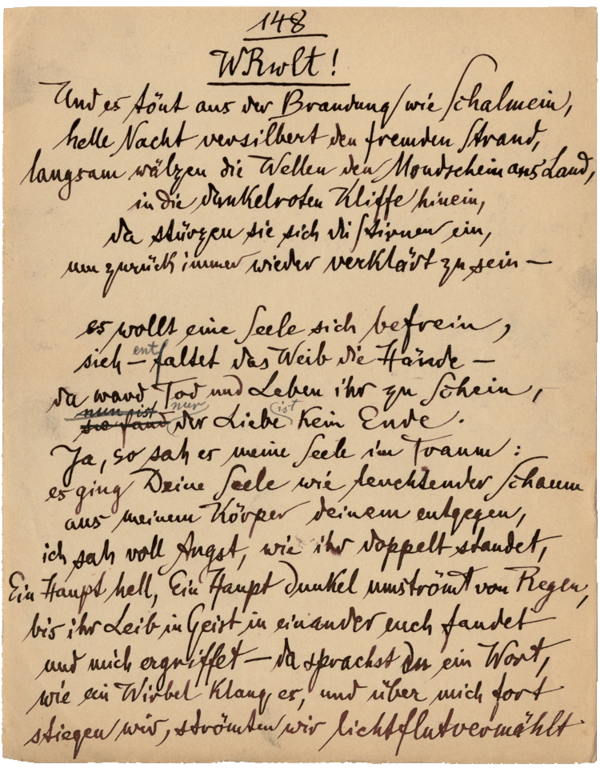 148
WRwlt!
Und es tönt aus der Brandung wie Schalmein,
helle Nacht versilbert den fremden Strand,
langsam wälzen die Wellen den Mondschein ans Land,
in die dunkelroten Kliffe hinein,
da stürzen sie sich die Stirnen ein,
um zurück immer wieder verklärt zu sein –
es wollt eine Seele sich befrein,
ent
sich – faltet das Weib die Hände –
da ward Tod und Leben ihr zu Schein,
nun ist nur ist
sie fand der Liebe kein Ende.
Ja, so sah er meine Seele im Traum:
es ging Deine Seele wie leuchtender Schaum
aus meinem Körper deinem entgegen,
ich sah voll Angst, wie ihr doppelt standet,
Ein Haupt hell, Ein Haupt dunkel umströmt von Regen,
bis ihr Leib in Geist in einander euch fandet
und mich ergriffet – da sprachst Du ein Wort,
wie ein Wirbel klang es, und über mich fort
stiegen wir, strömten wir lichtflutvermählt